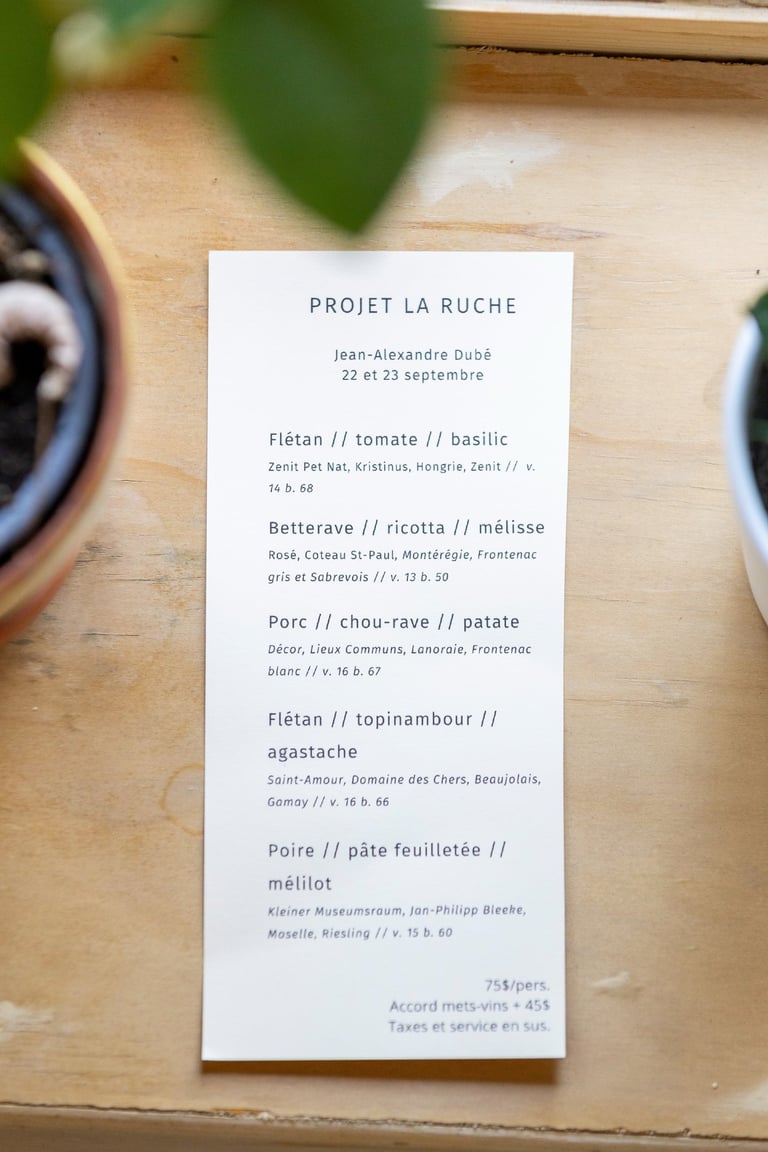 PROJET LA RUCHE
Jean-Alexandre Dubé
22 et 23 septembre
Flétan // tomate // basilic
Zenit Pet Nat, Kristinus, Hongrie, Zenit // v.
14 b. 68
Betterave // ricotta // mélisse
Rosé, Coteau St-Paul, Montérégie, Frontenac
gris et Sabrevois // v. 13 b. 50
Porc // chou-rave // patate
Décor, Lieux Communs, Lanoraie, Frontenac
blanc // v. 16 b. 67
Flétan // topinambour //
agastache
Saint-Amour, Domaine des Chers, Beaujolais,
Gamay // v. 16 b. 66
Poire // pâte feuilletée //
mélilot
Kleiner Museumsraum, Jan-Philipp Bleeke,
Moselle, Riesling // v. 15 b. 60
75$/pers.
Accord mets-vins + 45$
Taxes et service en sus.